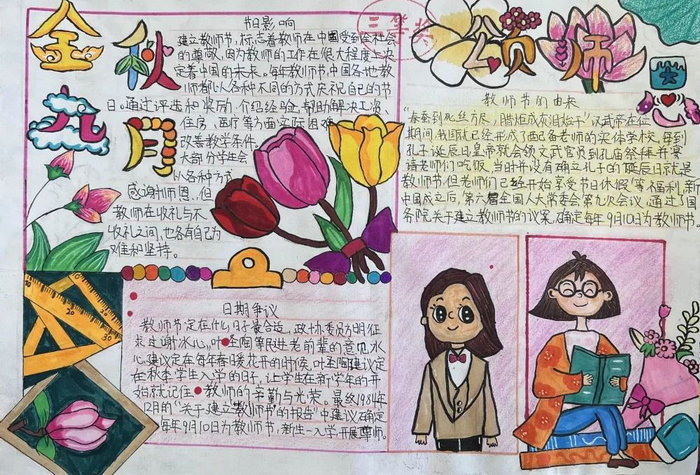 金秋九月
颂师
三等奖
节日影响
建立教师节,标志着教师在中国受到全社会
的尊敬,因为教师的工作在很大程度上决
定着中国的未来。每年教师节,中国各地教
师都以各种不同的方式庆祝自己的节
日。通过评选和奖励,介绍经验,帮助解决工资、
住房、医疗等方面实际困难
改善教学条件。
大部分学生会
以各种方式
感谢师恩。但
教师在收礼与不
收礼之间,也各有自己为
难和坚持。
教师节的由来
"春蚕到死丝方尽,腊炬成灰泪始干"汉武帝在位
期间,我国就已经形成了
老师的实体学校,每到
孔子诞辰日皇帝就会领文武官员到孔庙祭拜,并宴
请老师们吃饭,当时并没有确立孔子的诞辰日就是
教师节,但老师们已经开始享受节日休假等福利,新
中国成立后,第六届全国人大常委会第九次会议,通过了国
务院关于建立教师节的议案,确定每年9月10日为教师节。
日期争议
教师节定在什么日子最合适,政协委员方明征
求过谢冰心,叶圣陶等民进老前辈的意见冰
心建议定在每年春暖花开的时候,叶圣陶建议定
在秋季学生入学的日子,让学生在新学年的开
始就记住教师的辛勤与光荣。最终1984年
12月的"关于建立"教师节"的报告"中建议确定
每年9月10日为教师节,新生一入学开展尊师。